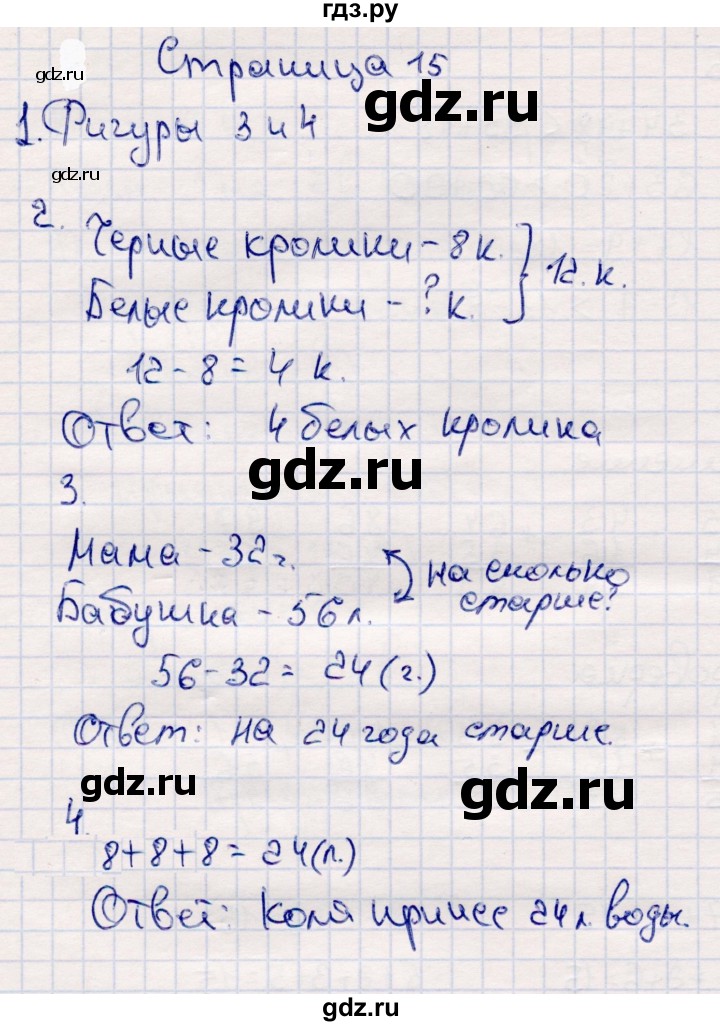 гдз.ру
Страница 15
gdz.ru
gdz.ru
1. Фигуры 3 и 4
gdz.ru
2.
Черные кролики - 8 к.
Белые кролики - ? к.
12. к.
12 - 8 = 4 к.
Ответ: 4 белых кролика
gdz.ru
3.
Мама - 32 г.
Бабушка - 56 л.
на сколько
старше?
56 - 32 = 24 (г.)
Ответ: на 24 года старше.
gdz.ru
gdz.ru
4.
8 + 8 + 8 = 24 (л.)
Ответ: Коля принес 24 л. воды.
gdz.ru